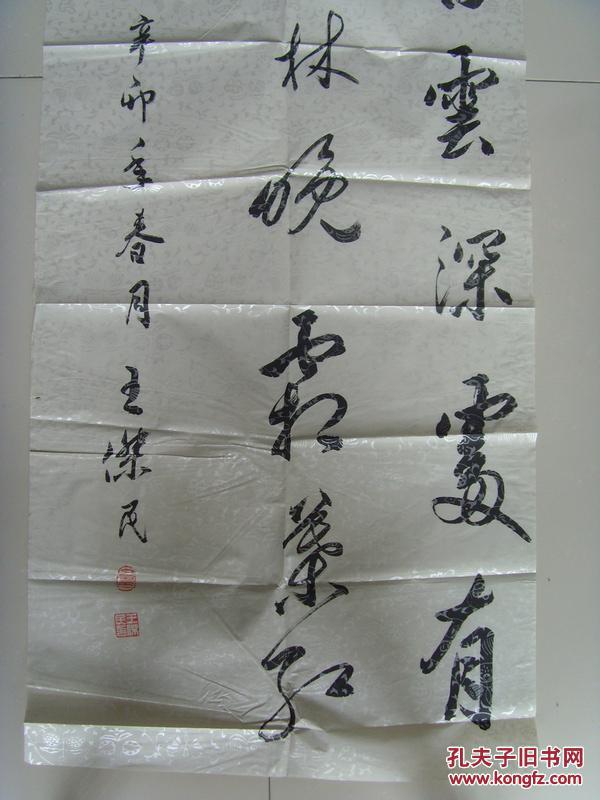 雲深處有
林晚霜葉紅
辛卯年春月 王傑民
孔夫子旧书网
www.kongfz.com